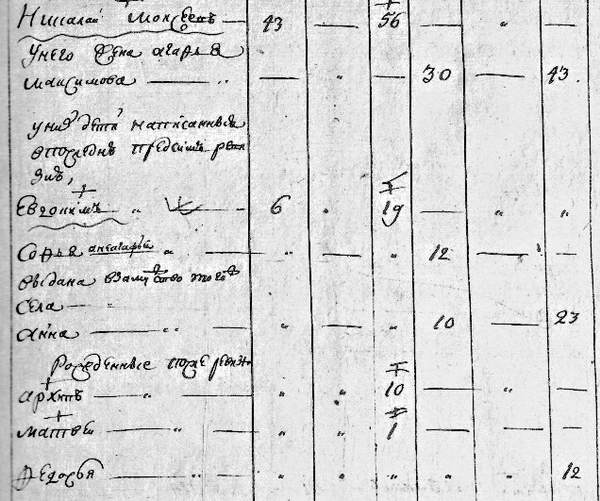 Николай Моисеевъ — 43 — 56 — " —
унего жена агафья
максимова — " — " — 30 — 43.
униѣ дѣти написанныя
впоследнѣ предсимъ реви
зиѣ,
Евдокимъ " 6 " 19 — " "
Софья " — " — " 12 — " —
выдана взамужство тогожъ
села — "
анна — " — " — " 10 — 23
Рожденные послѣ ревизи
архипъ — " — " " 10 — " —
матвеи — " — " " 1 — " —
Федосья — " — " " " " " 12